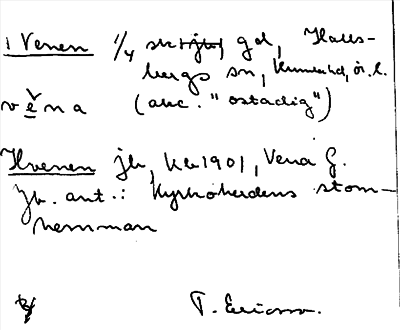 i Venen 1/4 skattejord, gd, Halls-
bergs sn, Kumla hd, ör. l.
věna (akc. "ostadig")
Hvenen jb, Kb 1901, Vena G.
Jb. ant.: Kyrkoherdens stom-
hemman
T. Ericsson.